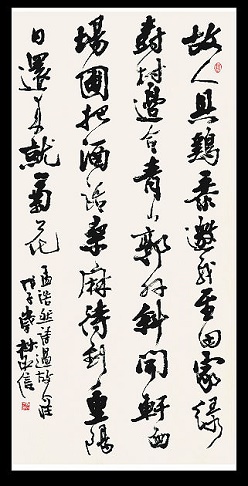 故人具鷄黍邀我至田家綠
樹村邊合青山郭外斜開軒面
場圃把酒話桑麻待到重陽
日還来就菊花
孟浩然詩過故人莊
戊子歲